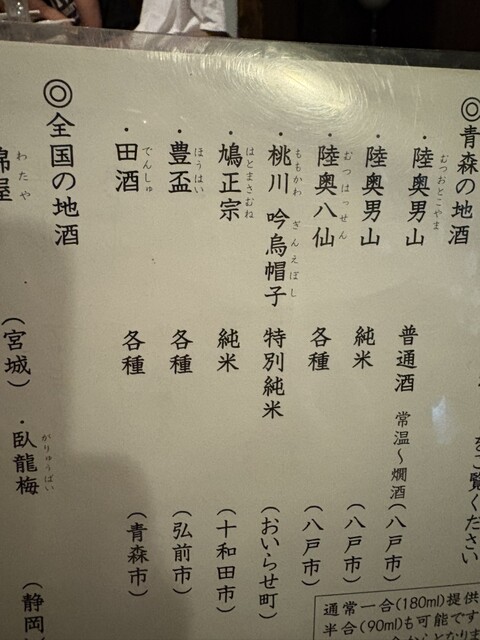 ◎青森の地酒
をご覧ください
・陸奥男山 むつおとこやま 普通酒 常温～燗酒 (八戸市)
・陸奥男山 純米 (八戸市)
・陸奥八仙 むつはっせん 各種 (八戸市)
・桃川 吟烏帽子 ももかわ ぎんえぼし 特別純米 (おいらせ町)
・鳩正宗 はとまさむね 純米 (十和田市)
・豊盃 ほうはい 各種 (弘前市)
・田酒 でんしゅ 各種 (青森市)
◎全国の地酒
綿屋 わたや (宮城)
・臥龍梅 がりゅうばい (静岡
通常一合(180ml)提供
半合(90ml)も可能です